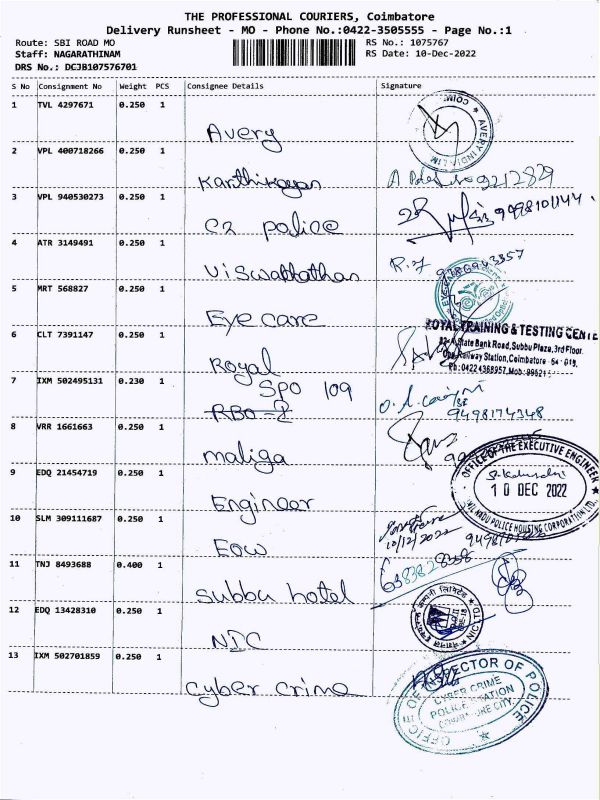 THE PROFESSIONAL COURIERS, Coimbatore
Delivery Runsheet - MO - Phone No.:0422-3505555 - Page No.:1
Route: SBI ROAD MO
RS No.: 1075767
Staff: NAGARATHINAM
RS Date: 10-Dec-2022
DRS No.: DCJB107576701
S No Consignment No Weight PCS Consignee Details Signature
1 TVL 4297671 0.250 1
Avery
AVERY INDIA LIM
2 VPL 400718266 0.250 1
Karthikayan
9212829
3 VPL 940530273 0.250 1
C2 police
9498101144
4 ATR 3149491 0.250 1
Viswabbathan
5 MRT 568827 0.250 1
Eye care
ROYAL TRAINING & TESTING CENTE
State Bank Road, Subbu Plaza, 3rd Floor.
Railway Station, Coimbatore
6 CLT 7391147 0.250 1
Royal
7 IXM 502495131 0.230 1
SPO 109
RBO-2
9498174348
8 VRR 1661663 0.250 1
maliga
9 EDQ 21454719 0.250 1
Engineer
OFFICE OF THE EXECUTIVE ENGINEER
10 DEC 2022
TAMIL NADU POLICE HOUSING CORPORATION LTD.
10 SLM 309111687 0.250 1
EOW
10/12/2022
11 TNJ 8493688 0.400 1
Subbu hotel
6383828358
12 EDQ 13428310 0.250 1
NIC
13 IXM 502701859 0.250 1
Cyber crime
OFFICE OF INSPECTOR OF POLICE
CYBER CRIME
POLICE STATION
COIMBATORE CITY.